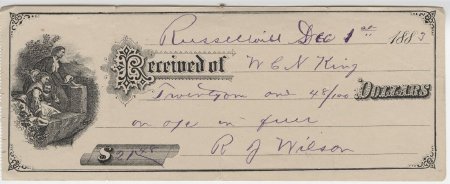 Russellvill Dec 1st 1883
Received of W C N King
Twenty one 48/100 DOLLARS
on a/c in full
$21.48 R J Wilson